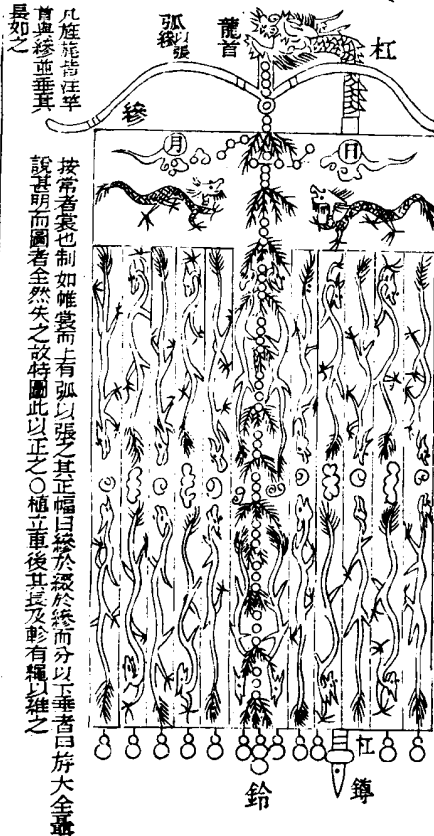 杠
龍首
弧以張
縿
縿
日
月
凡旌旄皆注竿
首與縿並垂其
長如之
按常者裳也制如帷裳而上有弧以張之其正幅曰縿於綴於縿而分以下垂者曰斿大全
說甚明而圖者全然失之故特圖此以正之○植立車後其長及軫有繩以維之
杠
鐏
鈴